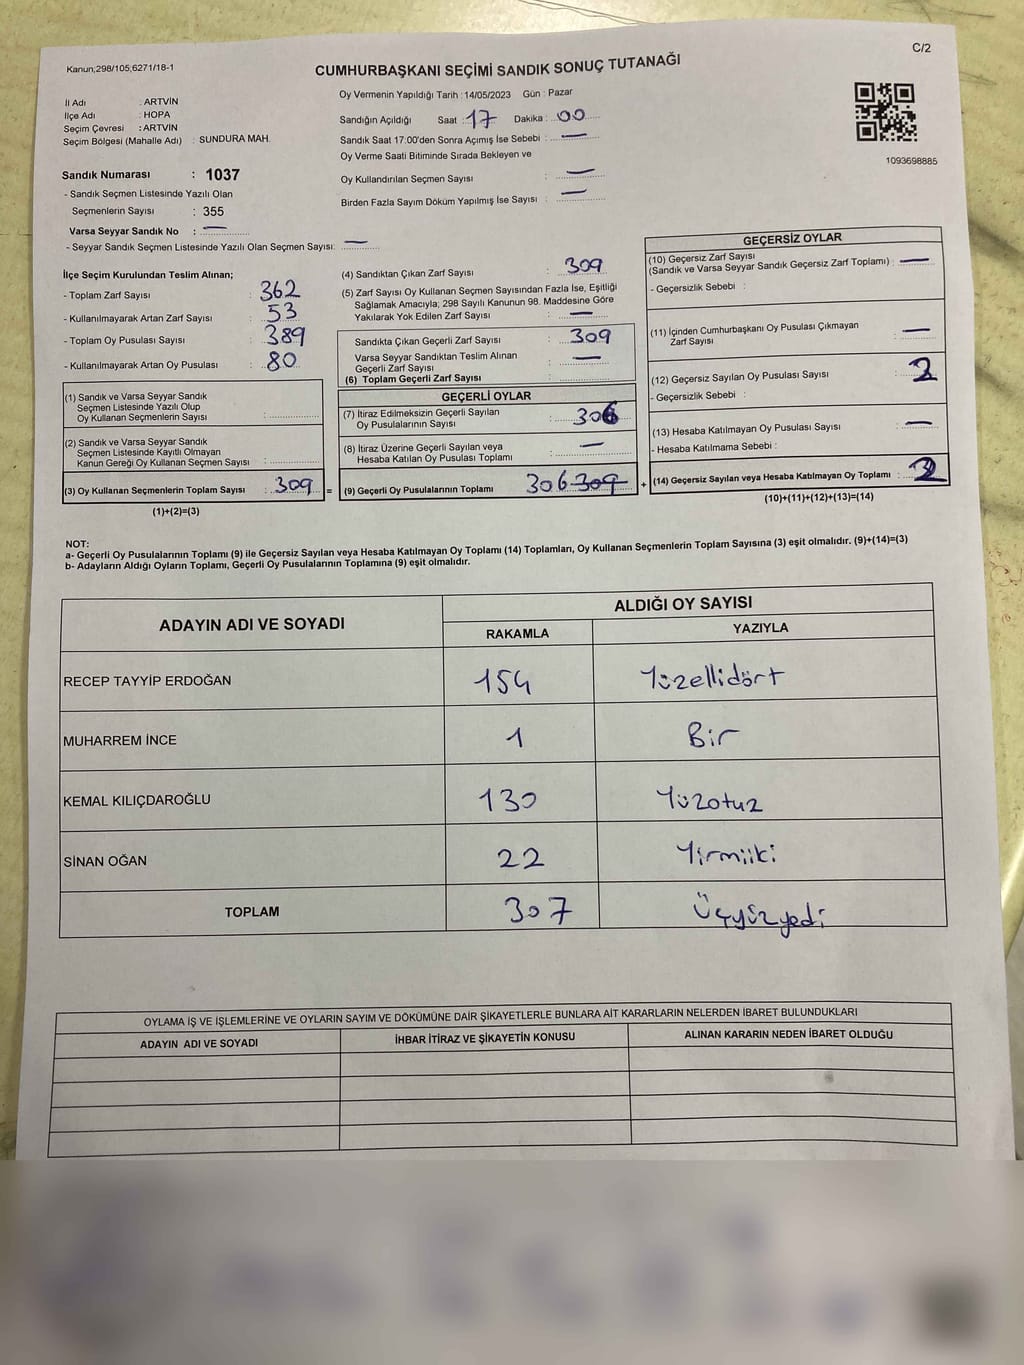 Kanun;298/105;6271/18-1
C/2
CUMHURBAŞKANI SEÇİMİ SANDIK SONUÇ TUTANAĞI
İl Adı : ARTVİN
İlçe Adı : HOPA
Seçim Çevresi : ARTVİN
Seçim Bölgesi (Mahalle Adı) : SUNDURA MAH.
Sandık Numarası : 1037
- Sandık Seçmen Listesinde Yazılı Olan
Seçmenlerin Sayısı : 355
Varsa Seyyar Sandık No : —
- Seyyar Sandık Seçmen Listesinde Yazılı Olan Seçmen Sayısı: —
Oy Vermenin Yapıldığı Tarih : 14/05/2023 Gün : Pazar
Sandığın Açıldığı Saat : 17 Dakika : 00
Sandık Saat 17:00'den Sonra Açımış İse Sebebi : —
Oy Verme Saati Bitiminde Sırada Bekleyen ve
Oy Kullandırılan Seçmen Sayısı : —
Birden Fazla Sayım Döküm Yapılmış İse Sayısı : —
1093698885
İlçe Seçim Kurulundan Teslim Alınan;
- Toplam Zarf Sayısı : 362
- Kullanılmayarak Artan Zarf Sayısı : 53
- Toplam Oy Pusulası Sayısı : 389
- Kullanılmayarak Artan Oy Pusulası : 80
(1) Sandık ve Varsa Seyyar Sandık
Seçmen Listesinde Yazılı Olup
Oy Kullanan Seçmenlerin Sayısı :
(2) Sandık ve Varsa Seyyar Sandık
Seçmen Listesinde Kayıtlı Olmayan
Kanun Gereği Oy Kullanan Seçmen Sayısı :
(3) Oy Kullanan Seçmenlerin Toplam Sayısı : 309 =
(1)+(2)=(3)
(4) Sandıktan Çıkan Zarf Sayısı : 309
(5) Zarf Sayısı Oy Kullanan Seçmen Sayısından Fazla İse, Eşitliği
Sağlamak Amacıyla; 298 Sayılı Kanunun 98. Maddesine Göre
Yakılarak Yok Edilen Zarf Sayısı : —
Sandıkta Çıkan Geçerli Zarf Sayısı : 309
Varsa Seyyar Sandıktan Teslim Alınan : —
Geçerli Zarf Sayısı
(6) Toplam Geçerli Zarf Sayısı :
GEÇERLİ OYLAR
(7) İtiraz Edilmeksizin Geçerli Sayılan
Oy Pusulalarının Sayısı : 306
(8) İtiraz Üzerine Geçerli Sayılan veya : —
Hesaba Katılan Oy Pusulası Toplamı
(9) Geçerli Oy Pusulalarının Toplamı 306 309 +
GEÇERSİZ OYLAR
(10) Geçersiz Zarf Sayısı
(Sandık ve Varsa Seyyar Sandık Geçersiz Zarf Toplamı) : —
- Geçersizlik Sebebi :
(11) İçinden Cumhurbaşkanı Oy Pusulası Çıkmayan : —
Zarf Sayısı
(12) Geçersiz Sayılan Oy Pusulası Sayısı :
- Geçersizlik Sebebi :
(13) Hesaba Katılmayan Oy Pusulası Sayısı : —
- Hesaba Katılmama Sebebi :
(14) Geçersiz Sayılan veya Hesaba Katılmayan Oy Toplamı :
(10)+(11)+(12)+(13)=(14)
NOT:
a- Geçerli Oy Pusulalarının Toplamı (9) ile Geçersiz Sayılan veya Hesaba Katılmayan Oy Toplamı (14) Toplamları, Oy Kullanan Seçmenlerin Toplam Sayısına (3) eşit olmalıdır. (9)+(14)=(3)
b- Adayların Aldığı Oyların Toplamı, Geçerli Oy Pusulalarının Toplamına (9) eşit olmalıdır.
ADAYIN ADI VE SOYADI
ALDIĞI OY SAYISI
RAKAMLA YAZIYLA
RECEP TAYYİP ERDOĞAN 154 Yüzellidört
MUHARREM İNCE 1 Bir
KEMAL KILIÇDAROĞLU 130 Yüzotuz
SİNAN OĞAN 22 Yirmiiki
TOPLAM 307 Üçyüzyedi
OYLAMA İŞ VE İŞLEMLERİNE VE OYLARIN SAYIM VE DÖKÜMÜNE DAİR ŞİKAYETLERLE BUNLARA AİT KARARLARIN NELERDEN İBARET BULUNDUKLARI
ADAYIN ADI VE SOYADI İHBAR İTİRAZ VE ŞİKAYETİN KONUSU ALINAN KARARIN NEDEN İBARET OLDUĞU